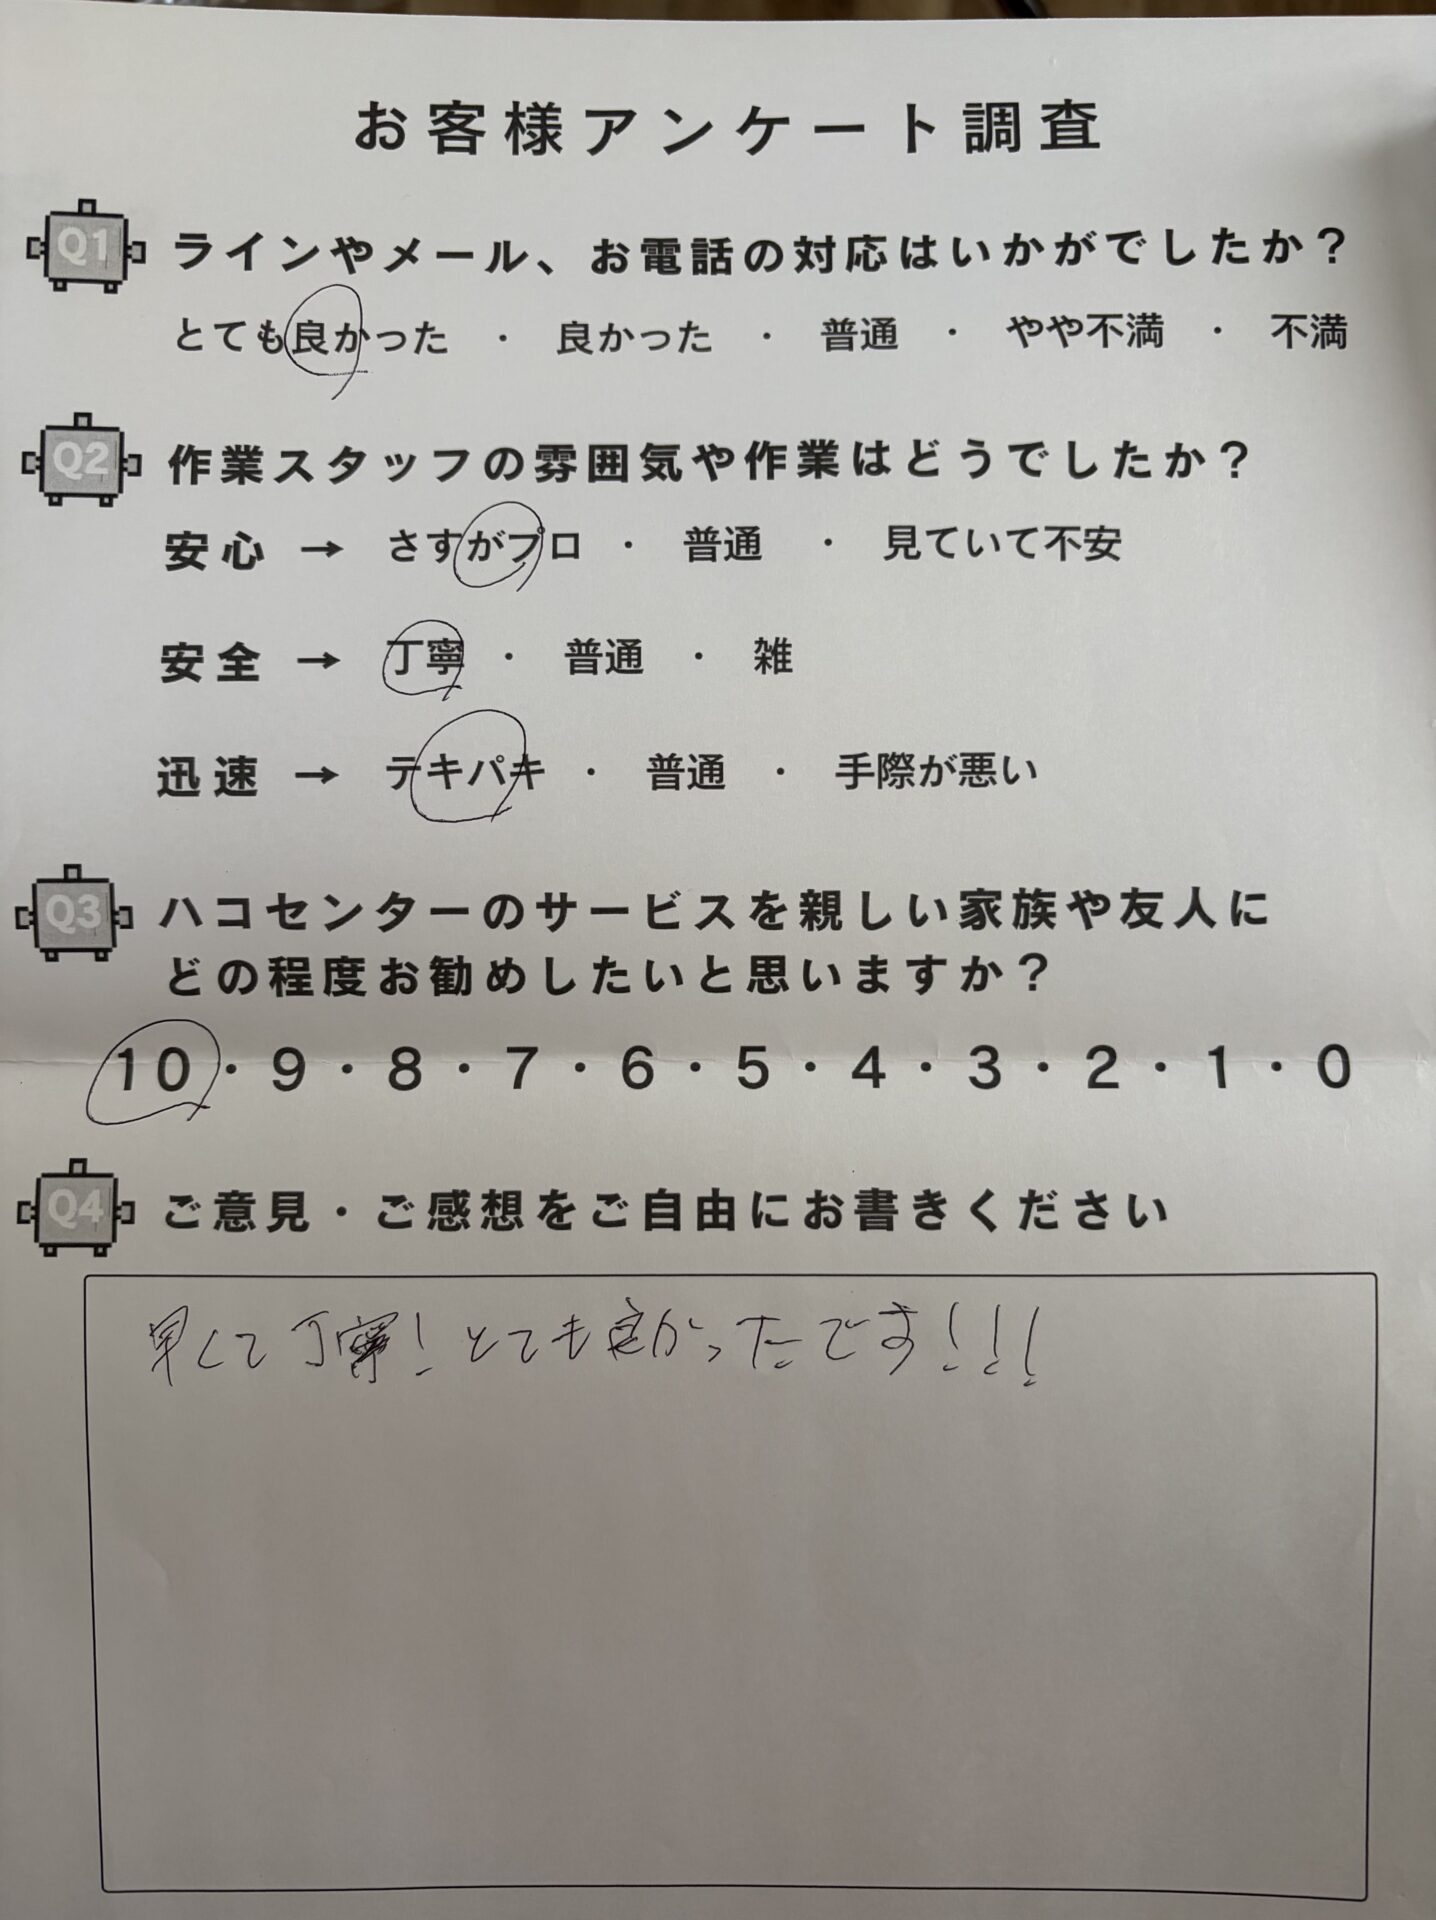 お客様アンケート調査
Q1 ラインやメール、お電話の対応はいかがでしたか？
とても良かった ・ 良かった ・ 普通 ・ やや不満 ・ 不満
Q2 作業スタッフの雰囲気や作業はどうでしたか？
安心 → さすがプロ ・ 普通 ・ 見ていて不安
安全 → 丁寧 ・ 普通 ・ 雑
迅速 → テキパキ ・ 普通 ・ 手際が悪い
Q3 ハコセンターのサービスを親しい家族や友人に
どの程度お勧めしたいと思いますか？
10・9・8・7・6・5・4・3・2・1・0
Q4 ご意見・ご感想をご自由にお書きください
早くて丁寧！とても良かったです！！！